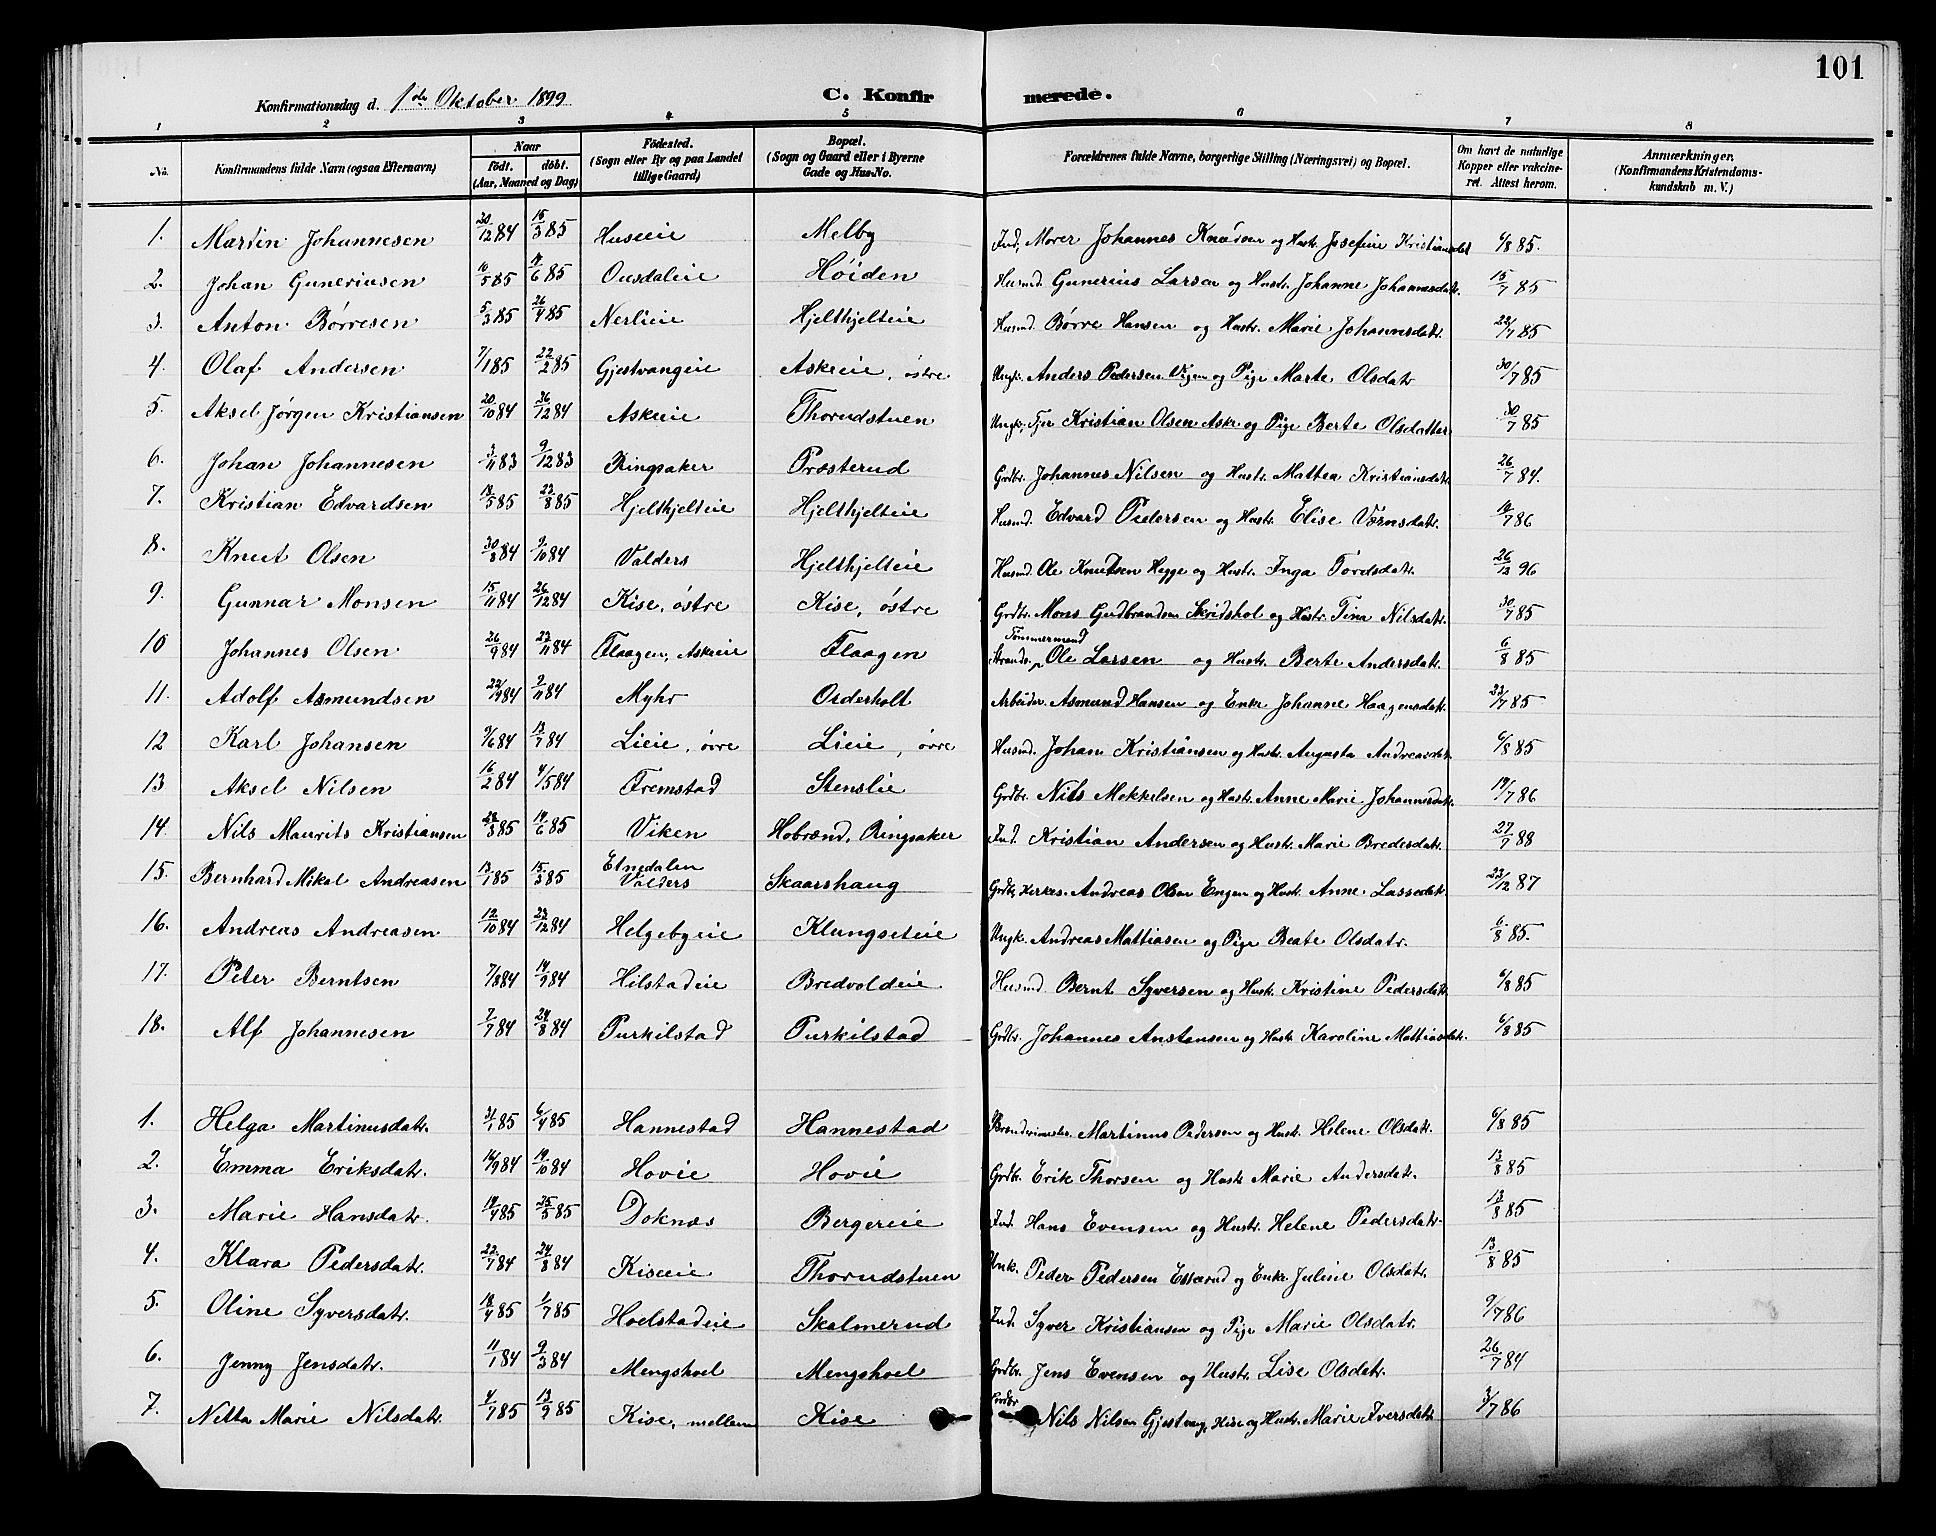 101
Konfirmationsdag d. 1ste Oktober 1899 C. Konfirmerede.
1 2 3 4 5 6 7 8
No. Konfirmandens fulde Navn (ogsaa Efternavn) Naar födt. döbt. (Aar, Maaned og Dag) Födested. (Sogn eller By og paa Landet tillige Gaard) Bopæl. (Sogn og Gaard eller i Byerne Gade og Hus-No. Forældrenes fulde Navne, borgerlige Stilling (Næringsvei) og Bopæl. Om havt de naturlige Kopper eller vakcineret. Attest herom. Anmærkninger. (Konfirmandens Kristendomskundskab m. V.)
1. Martin Johannesen 20/12 84 15/3 85 Huseie Melby Ind, Murer Johannes Knudsen og Hustr. Josefine Kristiansdat 6/8 85.
2. Johan Guneriusen 10/5 85 14/6 85 Ousdaleie Höiden Husmd. Gunerius Larsen og Hustr. Johanne Johannesdatr. 15/7 85
3. Anton Börresen 5/3 85 26/4 85 Nerlieie Hjelthjelteie Husmd. Börre Hansen og Hustr. Marie Johannesdatr. 22/7 85
4. Olaf Andersen 7/1 85 22/2 85 Gjestvangeie Askeie, östre Ungk. Anders Pedersen Vigen og Pige Marte Olsdatr 30/7 85
5. Aksel Jörgen Kristiansen 20/10 84 26/12 84 Askeie Thorudstuen Ungk, Tjer Kristian Olsen Aske og Pige Berte Olsdatter 30/7 85
6. Johan Johannesen 3/11 83 9/12 83 Ringsaker Præsterud Grdbr. Johannes Nilsen og Hustr. Mattea Kristiansdatr 26/7 84.
7. Kristian Edvardsen 18/5 85 23/8 85 Hjelthjelteie Hjelthjelteie Husmd. Edvard Pedersen og Hustr. Elise Värnsdatr. 14/7 86
8. Knut Olsen 30/8 84 9/10 84 Valders Hjelthjelteie Husmd. Ole Knudsen Hegge og Hustr. Inga Tordsdatr. 26/12 96
9. Gunnar Monsen 15/11 84 26/12 84 Kise, östre Kise, östre Grdbr. Mons Gudbrandsen Skridshol og Hustr. Tina Nilsdatr. 30/7 85
10 Johannes Olsen 26/9 84 23/11 84 Flaagen, Askeie Flaagen Tömmermand Strands. Ole Larsen og Hustr. Berte Andersdatr. 6/8 85
11. Adolf Asmundsen 22/9 84 2/11 84 Myhr Osderholt Arbeider. Asmund Hansen og Enke Johanne Haagensdatr. 23/7 85
12 Karl Johansen 9/6 84 13/7 84 Lieie, övre Lieie, övre Husmd. Johan Kristiansen og Hustr. Augusta Andreasdatr. 6/8 85
13 Aksel Nilsen 16/2 84 4/5 84 Fremstad Stenslie Grdbr. Nils Mekkelsen og Hustr. Anne Marie Johannesdatr 19/7 86
14. Nils Maurits Kristiansen 28/3 85 14/6 85 Viken Hobrænd, Ringsaker Ind. Kristian Andersen og Hustr. Marie Bredesdatr. 27/7 88
15. Bernhard Mikal Andreasen 13/1 85 15/3 85 Etnedalen Valders Skaarshaug Grdbr, Kirkes. Andreas Olsen Engen og Hustr. Anne Lassedatr 23/12 87
16. Andreas Andreasen 12/10 84 23/12 84 Helgebyeie Klungseteie Ungk. Andreas Mattiasen og Pige Beate Olsdatr. 6/8 85.
17. Peter Berntsen 7/8 84 14/9 84 Hilstadeie Bredvoldeie Husmd. Bernt Syversen og Hustr. Kristine Pedersdatr 6/8 85
18. Alf Johannesen 7/7 84 24/8 84 Purkilstad Purkilstad Grdbr. Johannes Anstensen og Hustr. Karoline Mattiasdatr. 6/8 85
1. Helga Martinusdatr. 31/1 85 6/4 85 Hannestad Hannestad Martinus Pedersen og Hust. Helene Olsdatr. 6/8 85
2. Emma Eriksdatr. 14/9 84 19/10 84 Hovie Hovie Grdbr. Erik Thorsen og Hustr Marie Andersdatr. 13/8 85
3. Marie Hansdatr. 19/4 85 25/5 85 Doknæs Bergereie Ind. Hans Evensen og Hustr. Helene Pedersdatr. 13/8 85
4. Klara Pedersdatr. 22/7 84 24/8 84 Kiseie Thorudstuen Unk. Peder Pedersen Esserud og Enke Juline Olsdatr. 13/8 85
5. Oline Syversdatr. 18/4 85 1/7 85 Hoelstadeie Skalmerud Ind. Syver Kristiansen og Pige Marie Olsdatr. 9/7 86
6. Jenny Jensdatr. 11/1 84 9/3 84 Mengshoel Mengshoel Grdbr. Jens Evensen og Hustr. Lise Olsdatr. 26/7 84
7. Netta Marie Nilsdatr. 4/7 85 13/9 85 Kise, mellem Kise Grdbr Nils Nilsen Gjestvang, Kise og Hustr. Marie Iversdatr 3/7 86